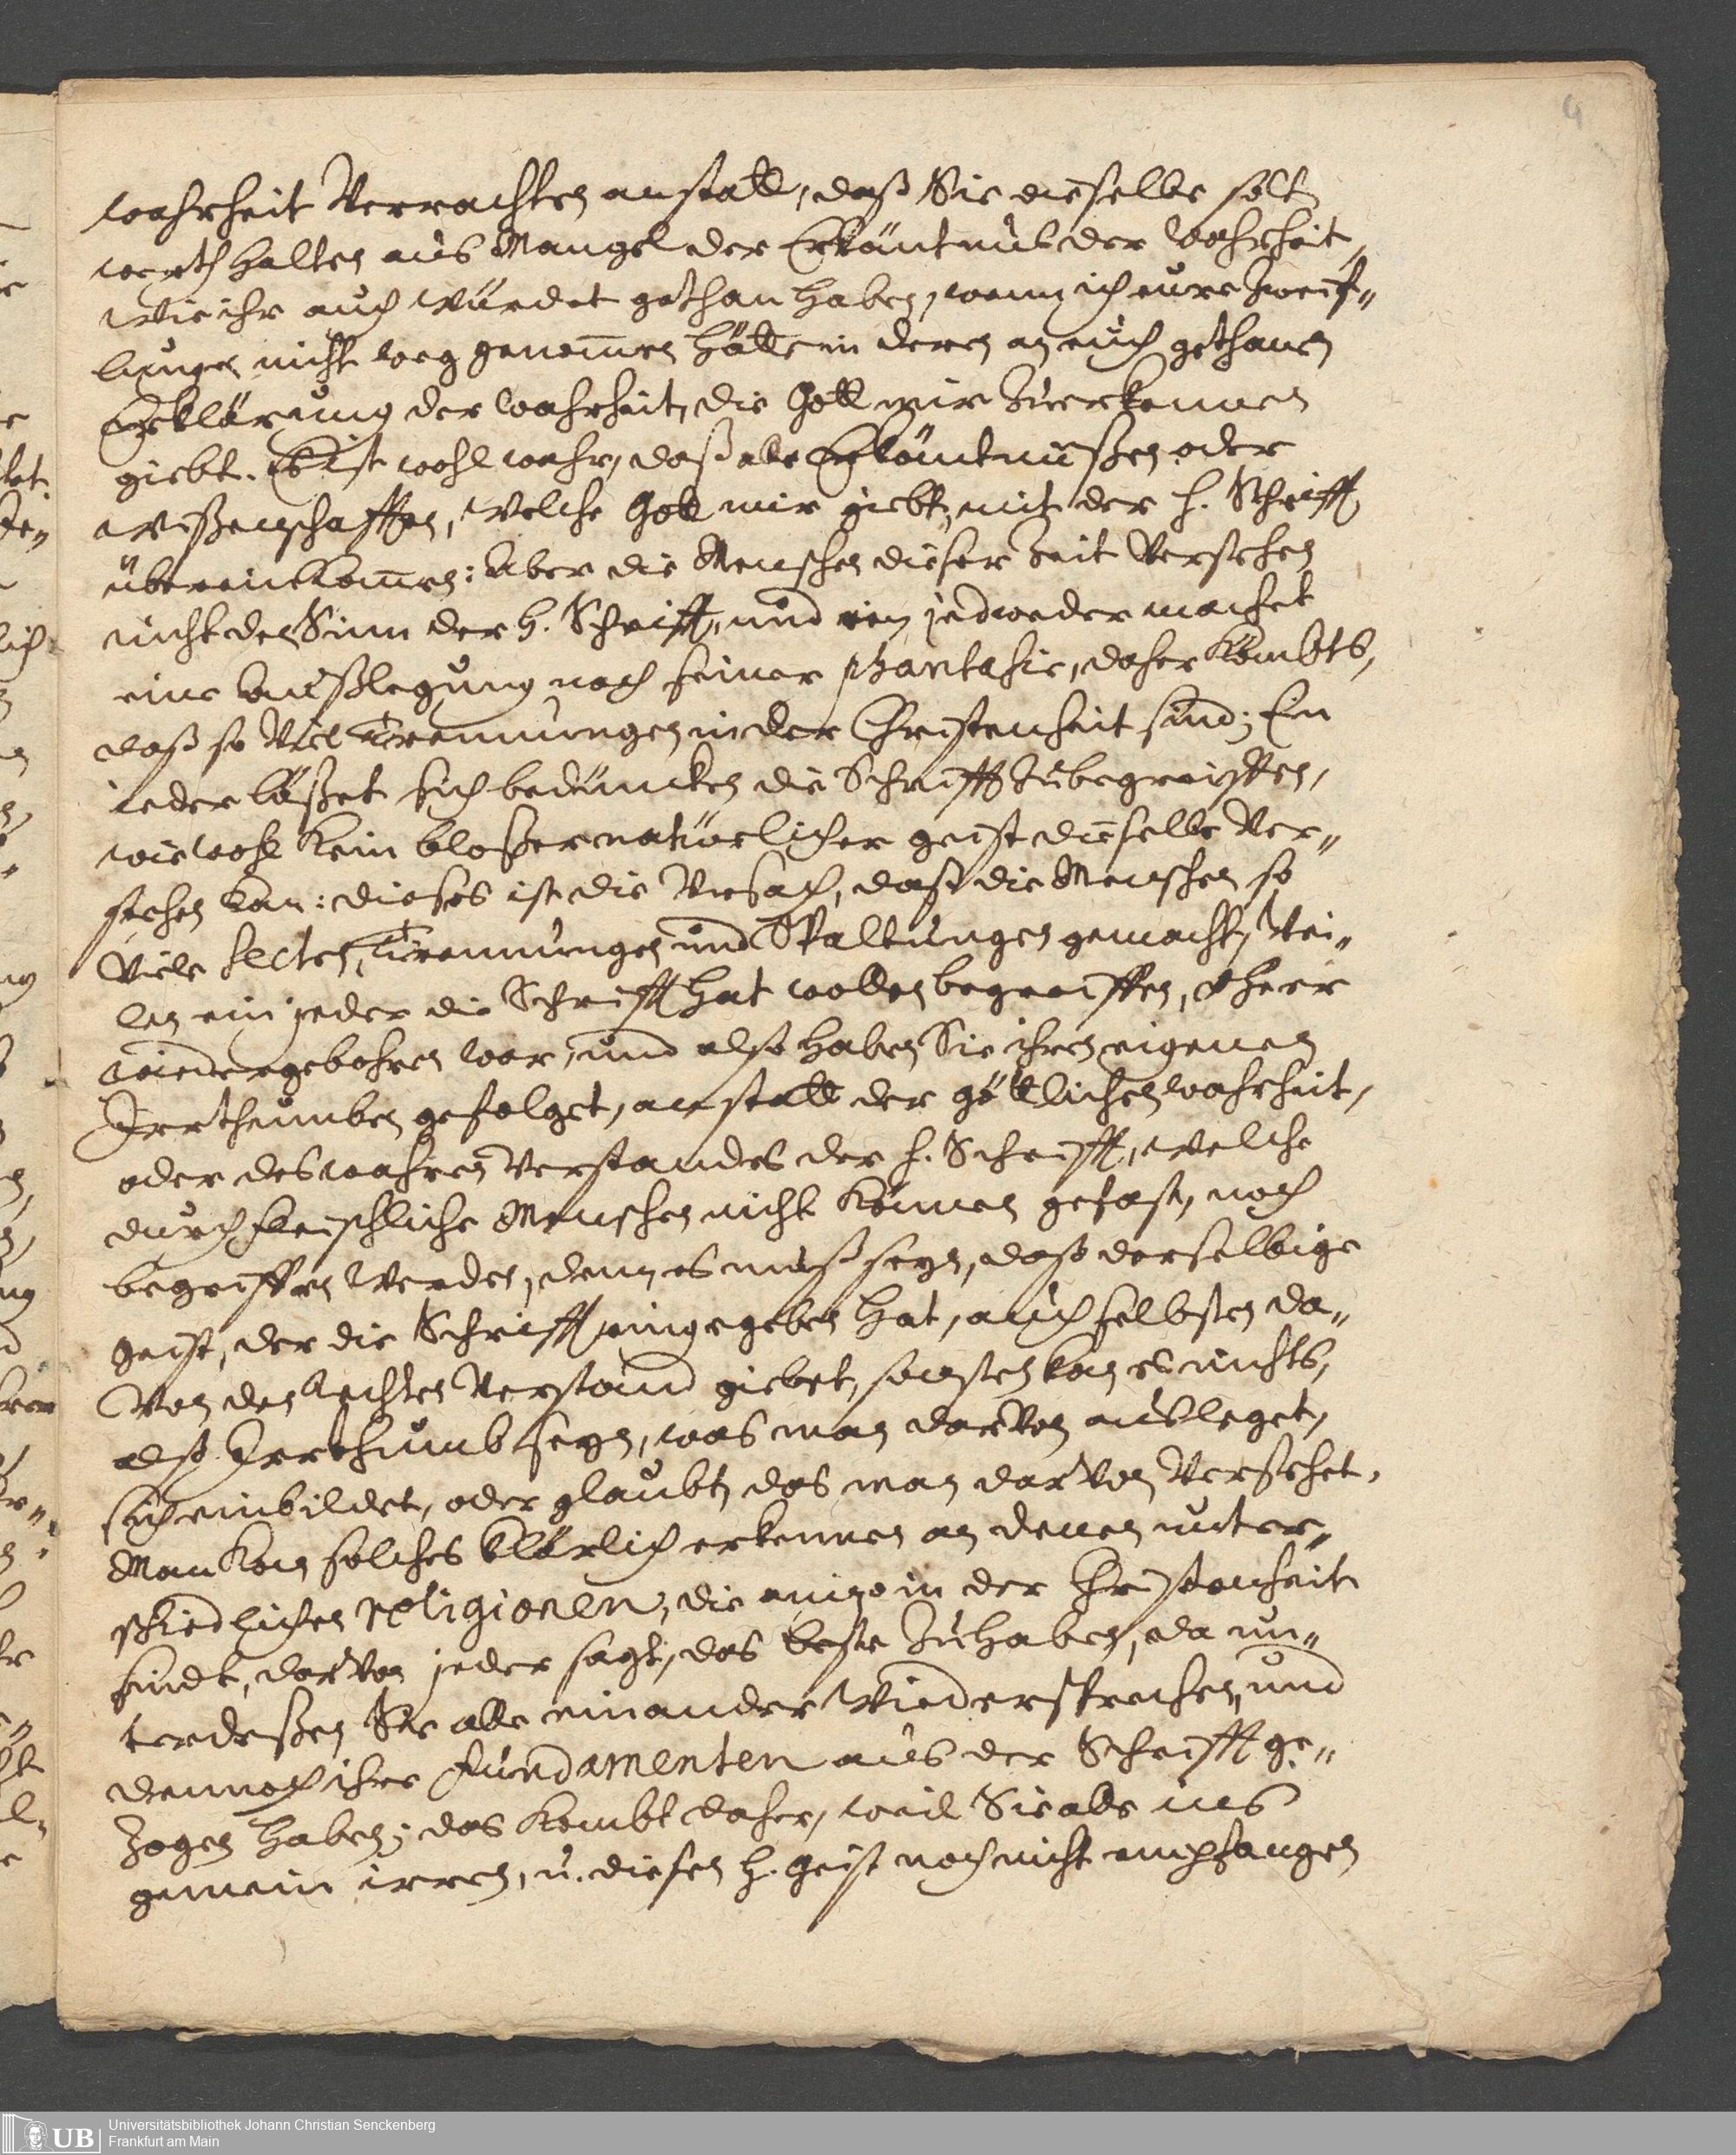 4
wahrheit Verrachten anstatt, daß Sie dieselbe solt
werth halten aus Mangel der Erkäntnüs der Wahrheit,
Wie ihr auch würdet gethan haben, wenn ich eure Zweif„
lungen nicht weg genom̄en hätte in deren an euch gethanen
Erklärung der Wahrheit, die Gott mir Zuerkennen
giebt. Es ist wohl wahr, daß alle Erkäntnüßen oder
Wißenschafften, Welche Gott mir giebt, mit der H. Schrifft
übereinkom̄en: Aber die Menschen dieser Zeit Verstehen
nicht den Sinn der H. Schrifft, und ein jedweder machet
eine Außlegung nach seiner phantasie, daher kömbts,
daß so Viel Trennungen in der Christenheit sind; Ein
ieder läßet sich bedüncken die Schrifft Zubegreiffen,
wiewohl kein bloßer natürlicher geist dieselbe Ver„
stehen kan: dieses ist die Ursach, daß die Menschen so
Viele Secten, Trennungen und Spaltungen gemacht, Wei„
len ein jeder die Schrifft hat wollen begreiffen, eher er
wiedergebohren war, und also haben Sie ihren eigenen
Irrthumben gefolget, anstatt der göttlichen wahrheit,
oder des wahren Verstandes der H. Schrifft, Welche
durch fleischliche Menschen nicht können gefast, noch
begriffen Werden, denn es muß seyn, daß derselbige
Geist, der die Schrifft eingegeben hat, auch selbsten da„
Von den rechten Verstand giebet, sonsten kan es nichts,
alß Irrthumb seyn, was man darvon ausleget,
sich einbildet, oder glaubt, das man darvon Verstehet.
Man kan solches klärlich erkennen an denen unter„
schiedlichen religionen, die anizo in der Christenheit
sindt, darvon jeder sagt, das beste Zuhaben, da un„
terdeßen Sie alle einander Wiedersprechen, und
dennoch ihre fundamenten aus der Schrifft ge„
zogen haben; das kombt daher, weil Sie alle ins
gemein irren, u. diesen H. Geist noch nicht empfangen
UB
Universitätsbibliothek Johann Christian Senckenberg
Frankfurt am Main